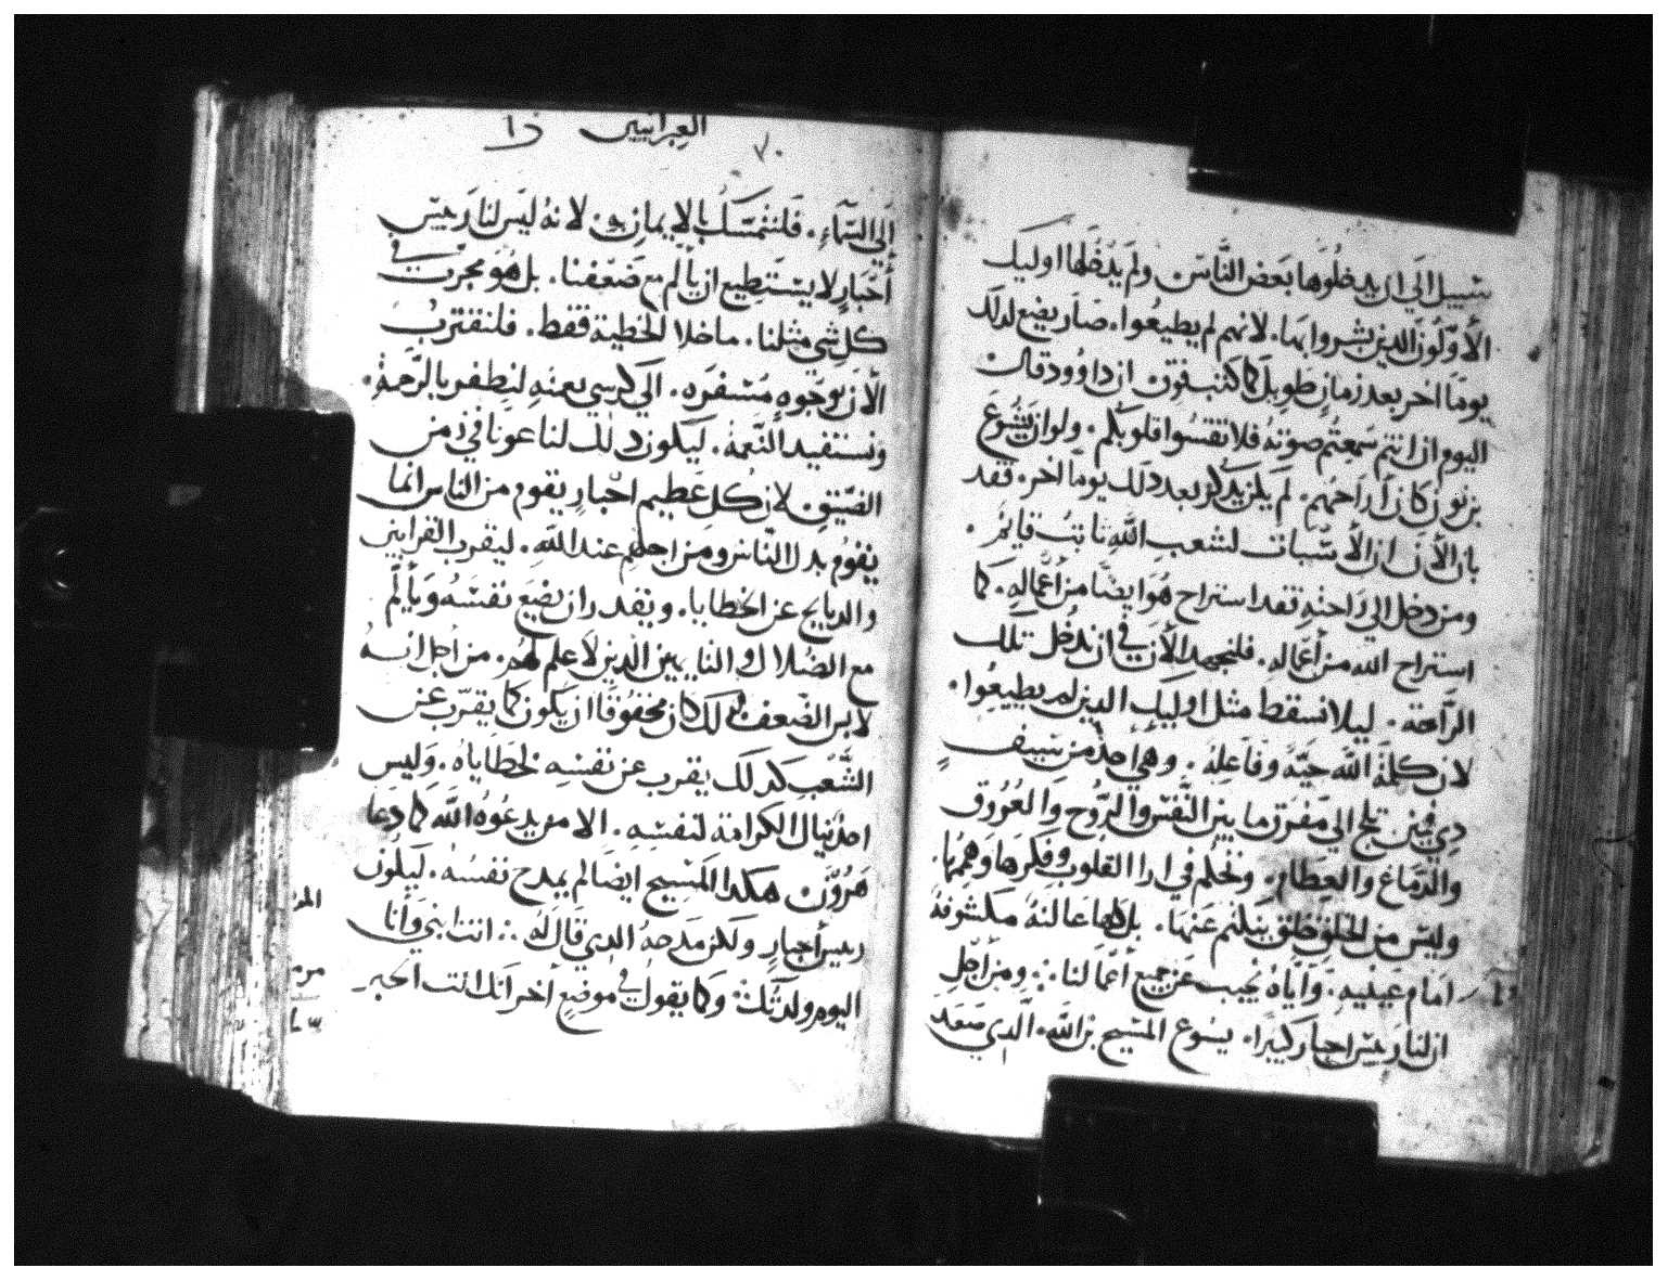 سبيل الي ان يدخلوها بعض الناس ولم يدخلها اوليك
الأولون الدين بشروا بها. لانهم لم يطيعوا. صار يضع لدلك
يوما اخر بعد زمان طويل كما كتب فوق ان داوود قال
اليوم ان انتم سمعتم صوته فلا تقسوا قلوبكم. ولو ان يشوع
بن نون كان أراحهم. لم يكن يدكر بعد دلك يوما اخر. فقد
بان الأن ان الأسبات لشعب الله ثابت قايم.
ومن دخل الي راحته فقد استراح هو ايضا من أعماله. كما
استراح الله من أعماله. فلنجتهد الأن في ان ندخل تلك
الراحة. ليلا نسقط مثل اوليك الدين لم يطيعوا.
لان كلمة الله حية وفاعلة. وهي أحد من سيف
دي فمين تلج الي مفرق ما بين النفس والروح والعروق
والدماغ والعظام. وتحكم في ارا القلوب وفكرها وهمها.
وليس من الخلق خلق ينكتم عنها. بل كلها عالنة مكشوفة
امام عينيه. واياه نجيب عن جميع أعمالنا ومن أجل
ان لنا رييس احبار كبيرا. يسوع المسيح بن الله. الدي صعد
العبرانيين
٧٠
إلي السماء. فلنتمسك بالايمان به لانه ليس لنا رييس
أحبار لا يستطيع ان يألم مع ضعفنا. بل هو مجرب في
كل شي مثلنا. ما خلا الخطية فقط. فلنقترب
الأن بوجوه مسفره. الي كرسي نعمته لنظفر بالرحمة.
ونستفيد النعمة. ليكون دلك لنا عونا في زمن
الضيق لان كل عظيم احبار يقوم من الناس انما
يقوم بدل الناس ومن اجلهم عند الله. ليقرب القرابين
والدبايح عن الخطايا. ويقدر ان يضع نفسه ويألم
مع الضلال و الدين لا علم لهم. من أجل انه
لابس الضعف كان محقوقا ان يكون كما يقرب عن
الشعب كدلك يقرب عن نفسه لخطاياه. وليس
احد ينال الكرامة لنفسه. الا من يدعوه الله كما دعا
هرون هكدا المسيح ايضا لم يمدح نفسه. ليكون
رييس أحبار ولكن مدحه الدي قال له انت ابني وأنا
اليوم ولدتك وكما يقول في موضع أخر انك انت الحبر